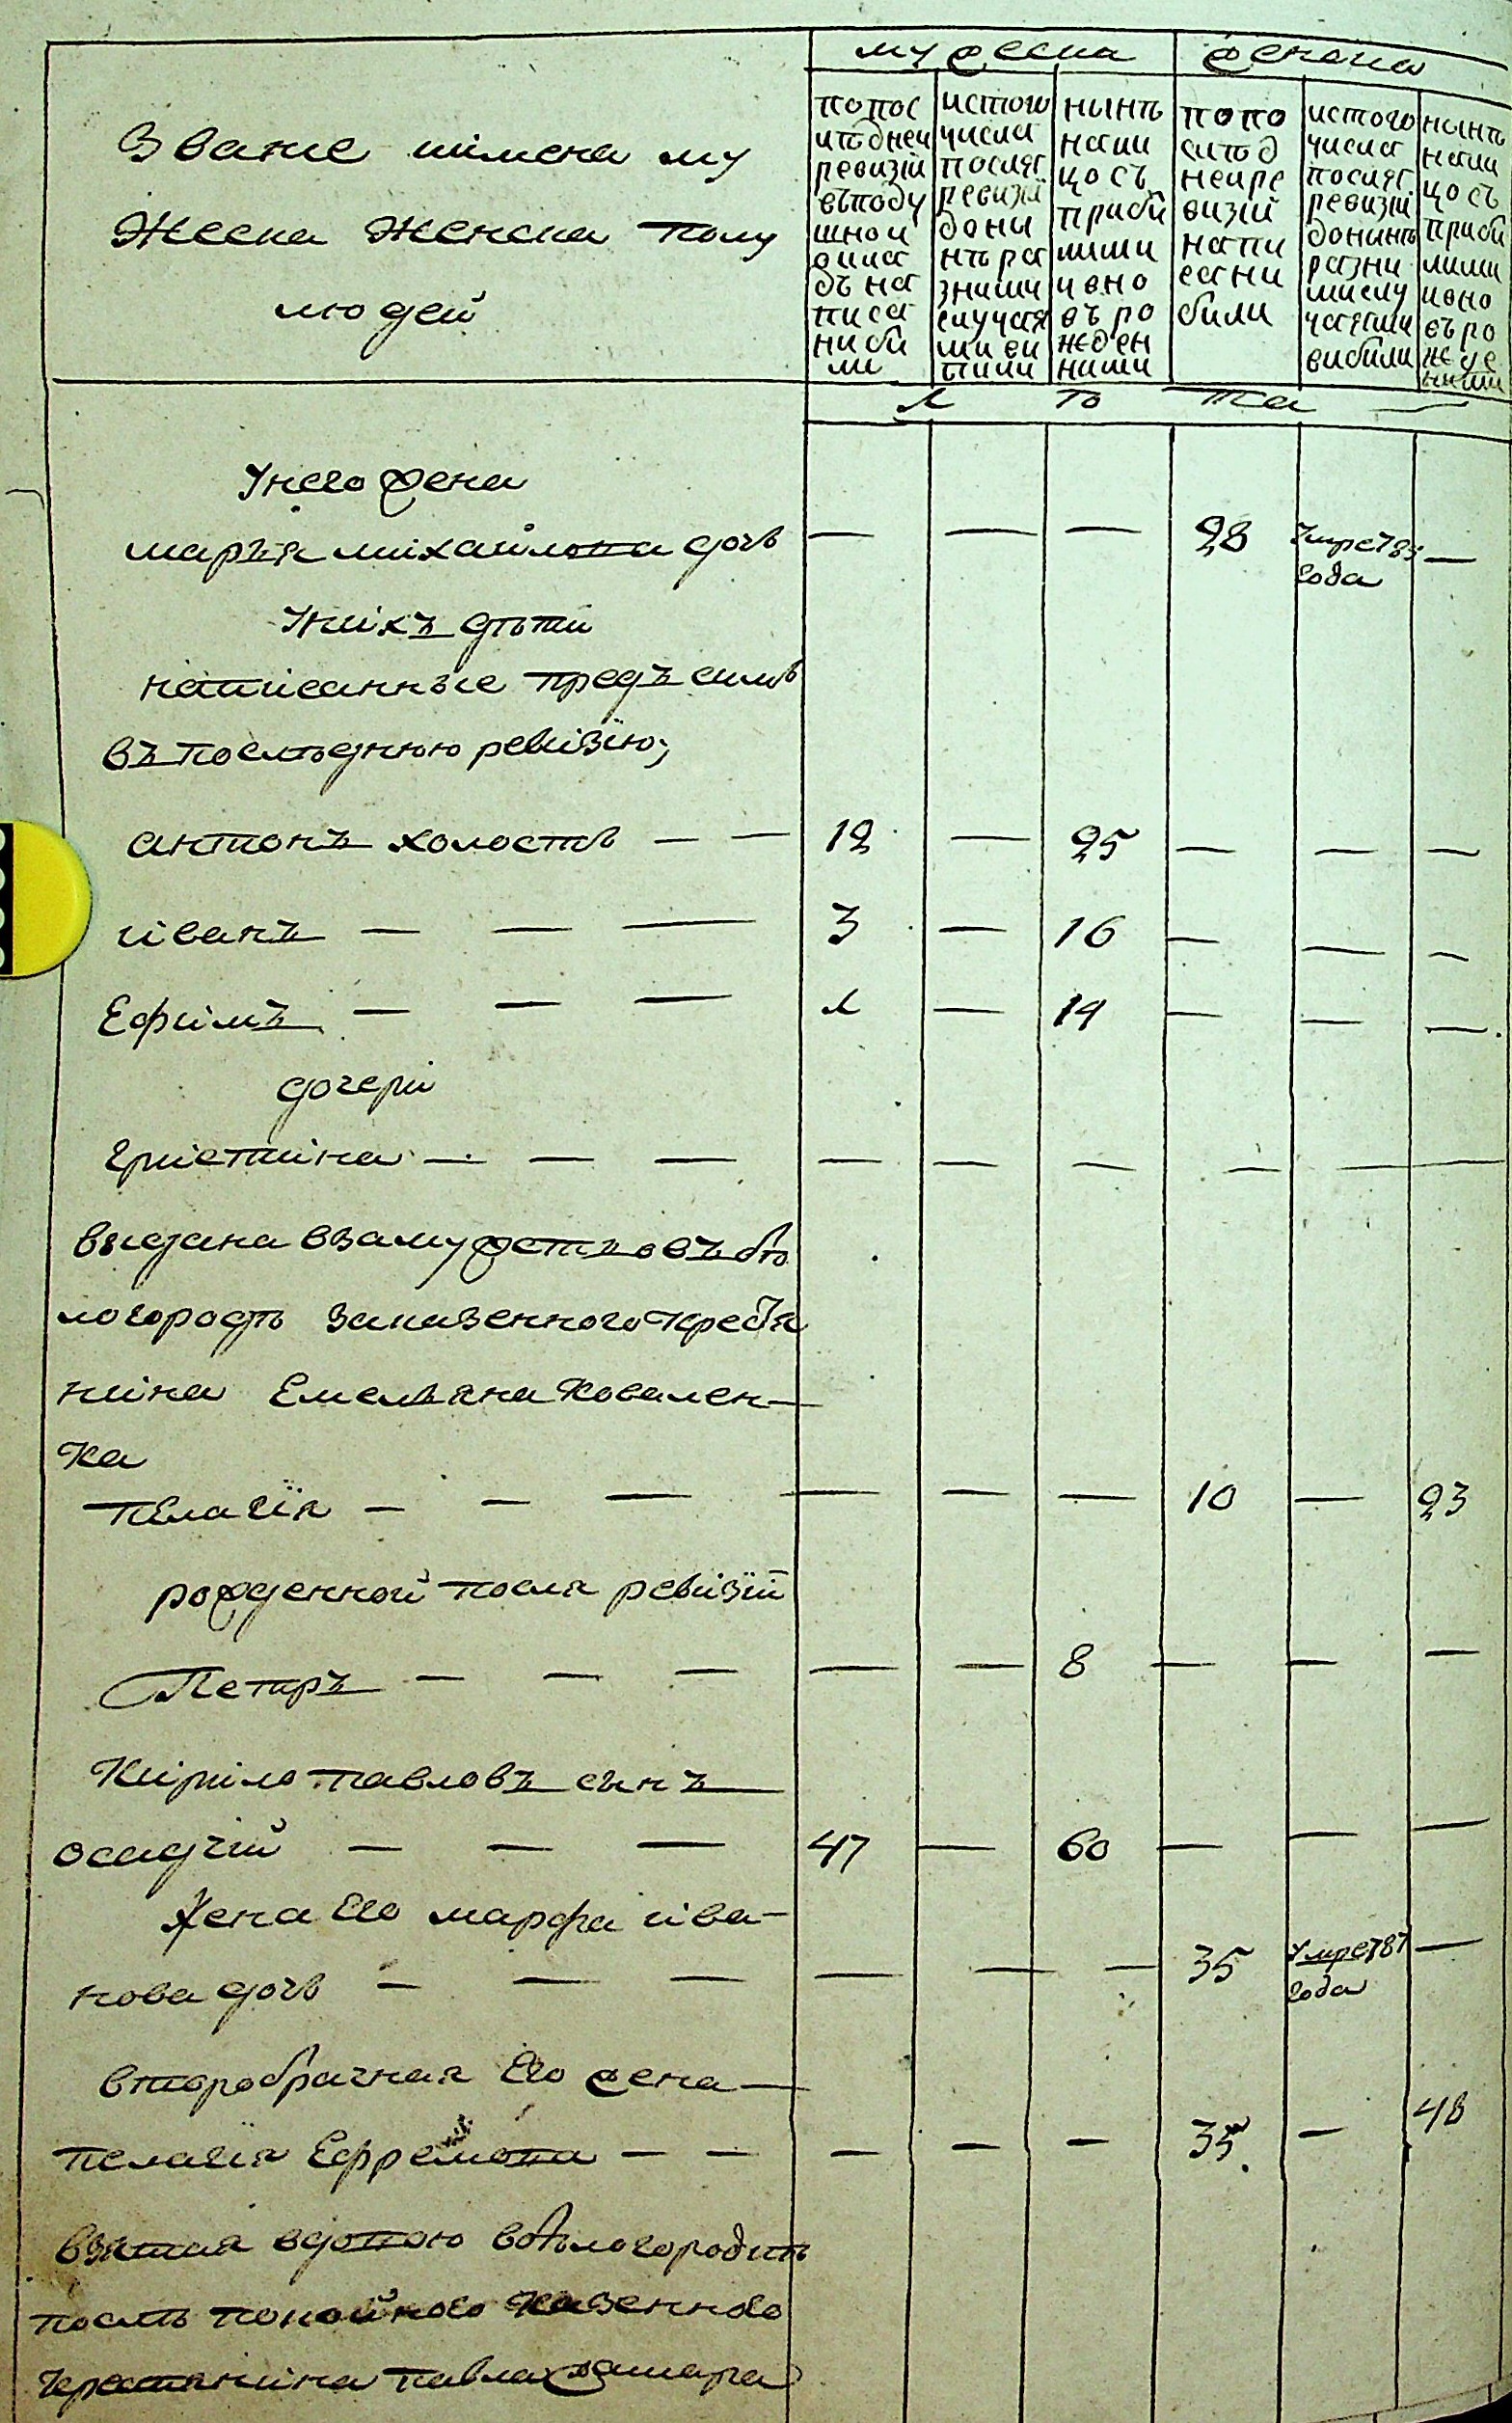 мужеска женска
Звание иімена му
жеска женска полу
людей
попос
лѣдней
ревизіи
въподу
шной
окла
дѣ на
писа
ни би
ли
истого
числа
послѣ
ревизіи
дони
нѣ ра
зними
случая
ми ви
били
нынѣ
нали
цо съ
приби
лими
ивно
въ ро
жден
ними
попо
слѣд
ней ре
визіи
напи
сани
били
истого
числа
послѣ
ревизіи
донынѣ
разни
ми слу
чаями
вибили
нынѣ
нали
цо съ
приби
лими
ивно
въ ро
жде
ними
л ѣ та
Унего жена
марья михайлова дочь — — — 28 Умре 783 —
года
Унихъ дѣти
написанные предъ симъ
въ последнюю ревизію;
антонъ холостъ — — 12 — 25 — — —
иванъ — — — 3 — 16 — — —
Ефимъ — — — 1 — 14 — — —
дочери
Христина — — — — — — — — —
выдана взамужетво въ бѣ
логородѣ заказенного крестья
нина Емельяна Ковален-
ка
Пелагія — — — — — — 10 — 23
рожденной посля ревизіи
Петръ — — — — — 8 — — —
Кирило павловъ сынъ
осадчій — — — 47 — 60 — — —
Жена Его марфа ива-
нова дочь — — — — — — 35 Умре 787 —
года
второбрачная Его жена
пелагія Ефремова — — — — — 35 — 48
взятая вдовою вбѣлогородкѣ
послѣ покойного казенного
крестянина павла